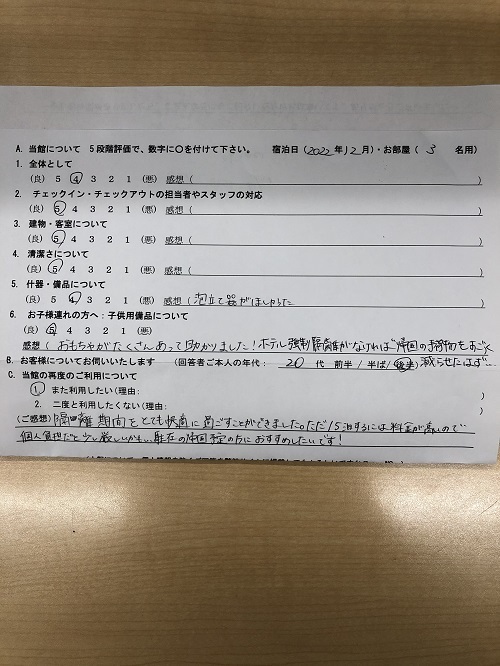 A. 当館について 5段階評価で、数字に〇を付けて下さい。 宿泊日(2022年12月)・お部屋( 3 名用)
1. 全体として
(良) 5 4 3 2 1 (悪) 感想( )
2. チェックイン・チェックアウトの担当者やスタッフの対応
(良) 5 4 3 2 1 (悪) 感想( )
3. 建物・客室について
(良) 5 4 3 2 1 (悪) 感想( )
4. 清潔さについて
(良) 5 4 3 2 1 (悪) 感想( )
5. 什器・備品について
(良) 5 4 3 2 1 (悪) 感想( 泡立て器がほしかった )
6. お子様連れの方へ:子供用備品について
(良) 5 4 3 2 1 (悪)
感想( おもちゃがたくさんあって助かりました!ホテル強制隔離がなければ帰国の荷物をすごく
B. お客様についてお伺いいたします (回答者ご本人の年代: 20 代 前半 / 半ば / 後半) 減らせたはず…
C. 当館の再度のご利用について
1. また利用したい(理由: )
2. 二度と利用したくない(理由: )
(ご感想) 隔離期間をとても快適に過ごすことができました。ただ15泊するには料金が高いので
個人負担だと少し厳しいかも… 駐在の帰国予定の方におすすめしたいです!